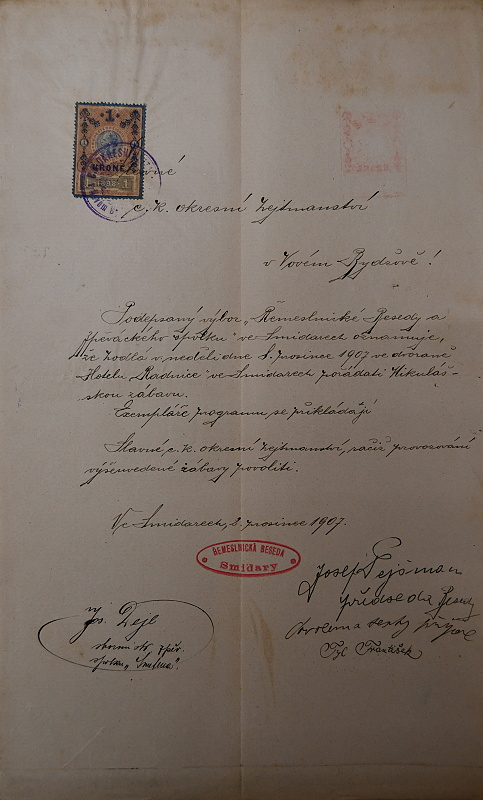 1
KRONE
1
c. k. okresní hejtmanství
v Novém Bydžově!
Podepsaný výbor „Řemeslnické Besedy a
Zpěváckého spolku" ve Smidarech oznamuje,
že hodlá v neděli dne 8. prosince 1907 ve dvoraně
Hotelu „Radnice" ve Smidarech pořádati Mikuláš-
skou zábavu.
Exempláře programu se přikládají
Slavné c. k. okresní hejtmanství, račiž provozování
výšeuvedené zábavy povoliti.
Ve Smidarech, 2. prosince 1907.
ŘEMESLNICKÁ BESEDA
Smidary
Josef Pejšman
předseda Besedy
Jos. Dejl
spolku „Smetana".
Tyl František